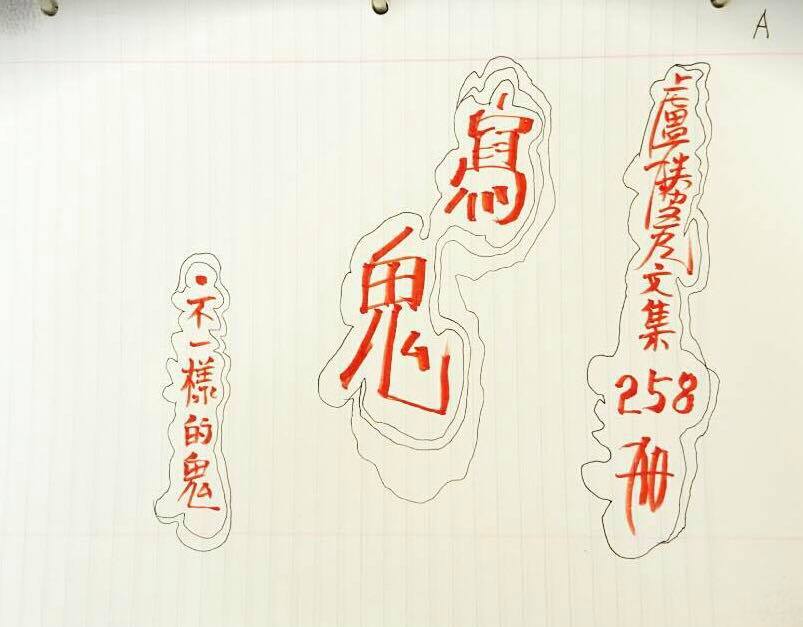 A
盧勝彥文集258冊
寫鬼
•不一樣的鬼